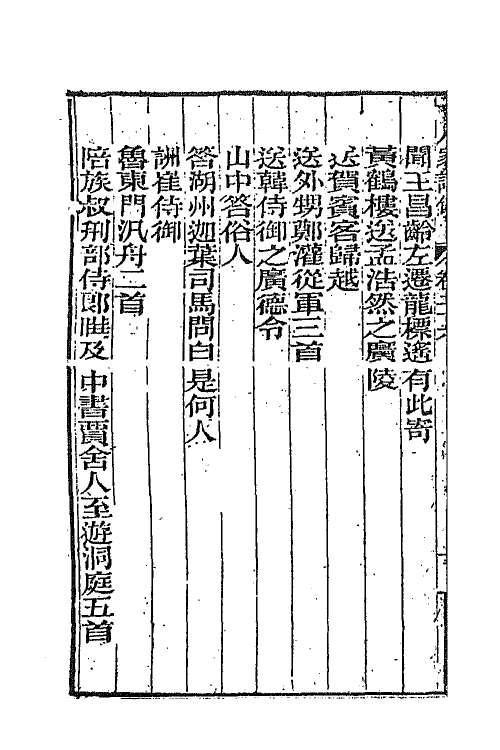 聞王昌齡左遷龍標遙有此寄
黃鶴樓送孟浩然之廣陵
送賀賓客歸越
送外甥鄭灌從軍三首
送韓侍御之廣德令
山中答俗人
答湖州迦葉司馬問白是何人
詶崔侍御
魯東門汎舟二首
陪族叔刑部侍郎曄及中書賈舍人至遊洞庭五首